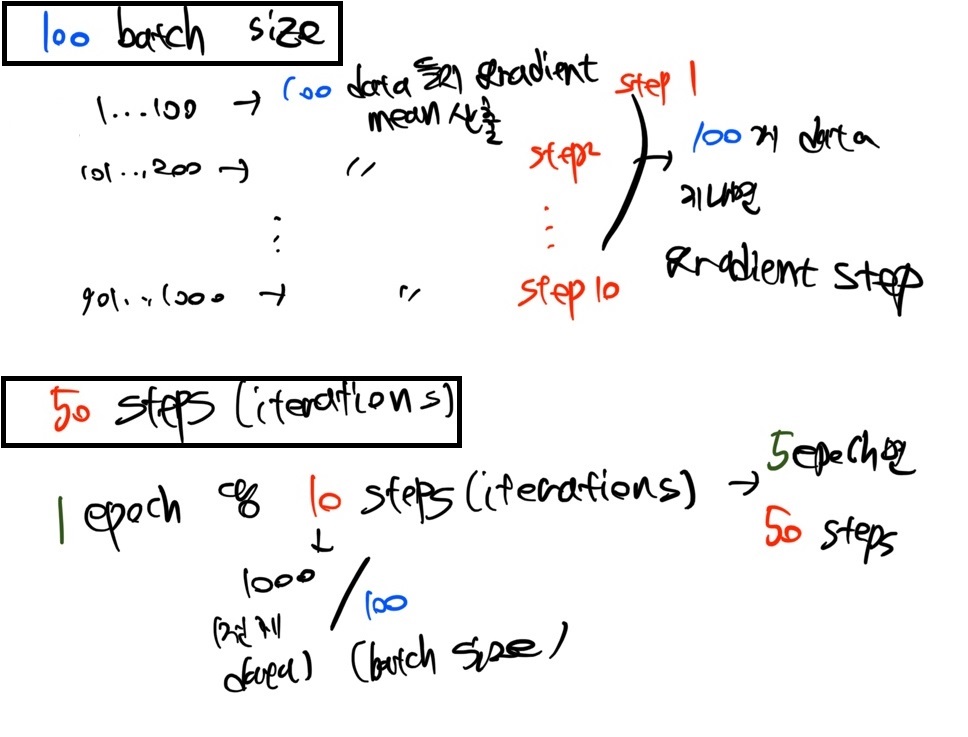 100 batch size
1...100 → 100 data 들의 gradient step 1
mean 산출
101...200 → 〃 step2 → 100개 data
지나면
⋮ ⋮ gradient step
901...1000 → 〃 step 10
50 steps (iterations)
1 epoch 당 10 steps (iterations) → 5 epoch면
↓ 50 steps
1000 / 100
(전체 data) (batch size)